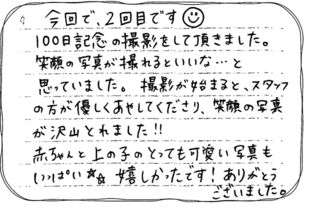 今回で、2回目です☺
100日記念の撮影をして頂きました。
笑顔の写真が撮れるといいな…と
思っていました。撮影が始まると、スタッフ
の方が優しくあやしてくださり、笑顔の写真
が沢山とれました!!
赤ちゃんと上の子のとっても可愛い写真も
いっぱい☆☆ 嬉しかったです!ありがとう
ございました。